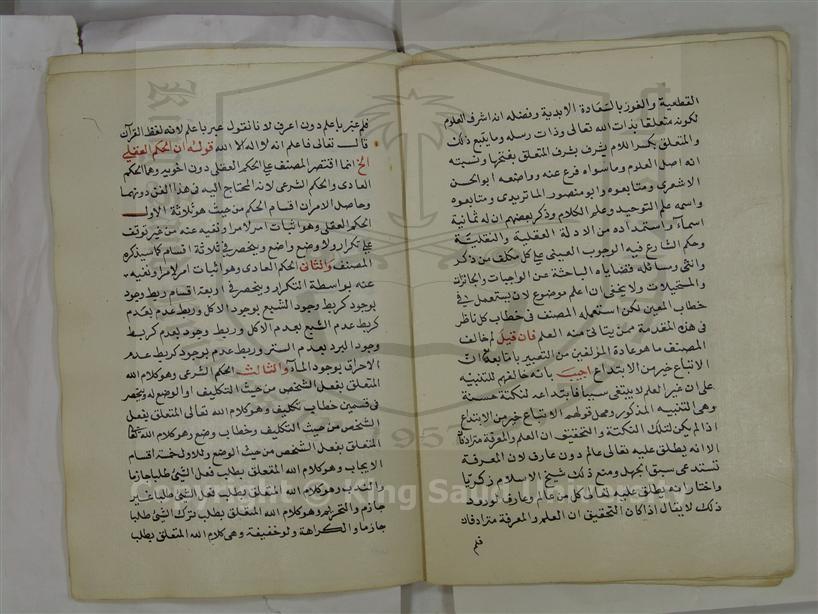 القطعية والفوز بالسعادة الابدية وفضله انه اشرف العلوم
لكونه متعلقا بذات الله تعالى وذات رسله وما يتبع ذلك
والمتعلق بكسر اللام يشرف بشرف المتعلق بفتحها ونسبته
انه اصل العلوم وما سواه فرع عنه وواضعه ابو الحسن
الاشعري ومتابعوه وابو منصور الماتريدي ومتابعوه
واسمه علم التوحيد وعلم الكلام وذكر بعضهم ان له ثمانية
اسمآء واستمداده من الادلة العقلية والنقلية
وحكم الشارع فيه الوجوب العيني على كل مكلف من ذكر
وانثى ومسائله قضاياه الباحثة عن الواجبات والجائزات
والمستحيلات ولا يخفى ان اعلم موضوع لان يستعمل في
خطاب المعين لكن استعمله المصنف في خطاب كل ناظر
في هذه المقدمة ممن يتاتى منه العلم فان قيل لم خالف
المصنف ما هو عادة المؤلفين من التعبير باما بعد مع ان
الاتباع خير من الابتداع اجيب بانه خالفهم للتنبيه
على ان غير العلم لا ينبغي سببا فابتداعه لنكتة حسنة
وهي التنبيه المذكور ومحل قولهم الاتباع خير من الابتداع
اذا لم يكن لتلك النكتة والتحقيق ان العلم والمعرفة مترادفان
الا انه يطلق عليه تعالى عالم دون عارف لان المعرفة
تستدعي سبق الجهل ومنع ذلك شيخ الاسلام زكريا
واختار انه يطلق عليه تعالى كل من عالم وعارف لورود
ذلك لا يقال اذا كان التحقيق ان العلم والمعرفة مترادفان
فلم
فلم عبر باعلم دون اعرف لانا نقول عبر باعلم لانه لفظ القرآن
قال تعالى فاعلم انه لا اله الا الله قوله ان الحكم العقلي
الخ انما اقتصر المصنف على الحكم العقلي دون اخويه وهما الحكم
العادي والحكم الشرعي لانه المحتاج اليه في هذا الفن دونهما
وحاصل الامر ان اقسام الحكم من حيث هو ثلاثة الاول
الحكم العقلي وهو اثبات امر لامر او نفيه عنه من غير توقف
على تكرار ولا وضع واضع وينحصر في ثلاثة اقسام كما سيذكره
المصنف والثاني الحكم العادي وهو اثبات امر لامر او نفيه
عنه بواسطة التكرار وينحصر في اربعة اقسام ربط وجود
بوجود كربط وجود الشبع بوجود الاكل وربط عدم بعدم
كربط عدم الشبع بعدم الاكل وربط وجود بعدم كربط
وجود البرد بعدم الستر وربط عدم بوجود كربط عدم
الاحراق بوجود المآء والثالث الحكم الشرعي وهو كلام الله
المتعلق بفعل الشخص من حيث التكليف او الوضع له وينحصر
في قسمين خطاب تكليف وهو كلام الله تعالى المتعلق بفعل
الشخص من حيث التكليف وخطاب وضع وهو كلام الله تعالى
المتعلق بفعل الشخص من حيث الوضع وللاول خمسة اقسام
الايجاب وهو كلام الله المتعلق بطلب فعل الشئ طلبا جازما
والندب وهو كلام الله المتعلق بطلب فعل الشئ طلبا غير
جازم والتحريم وهو كلام الله المتعلق بطلب ترك الشئ طلبا
جازما والكراهة ولو خفيفة وهي كلام الله المتعلق بطلب
1957
Copyright © King Saud University